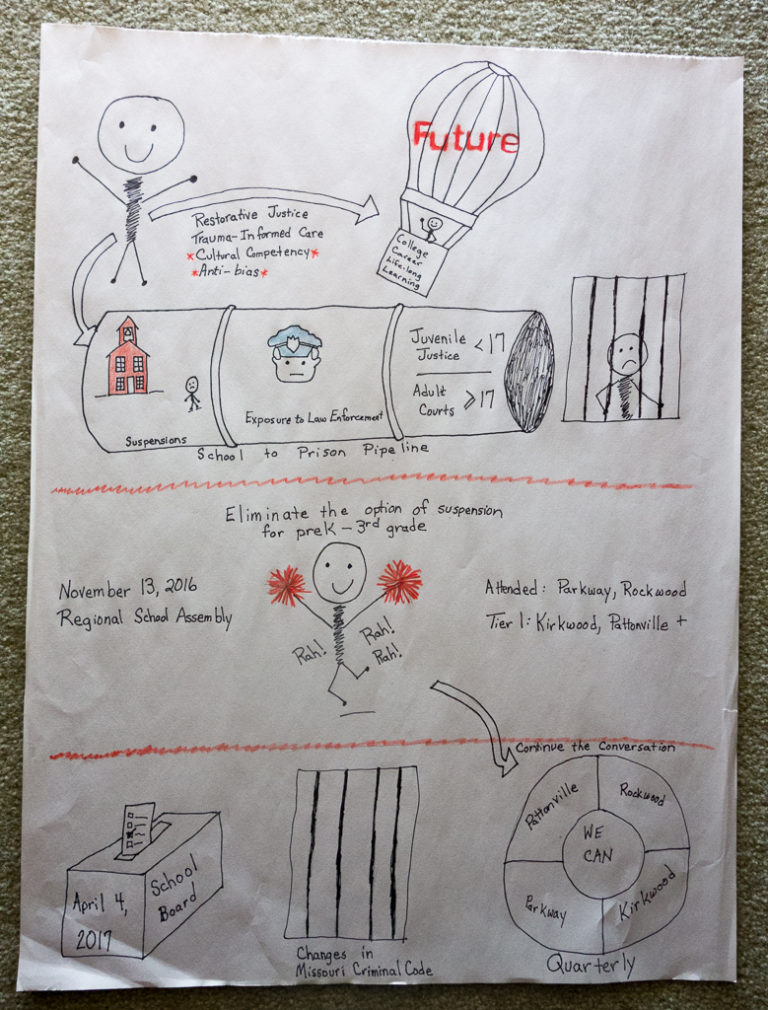 Future
Restorative Justice
Trauma-Informed Care
*Cultural Competency*
*Anti-bias*
College
Career
Life-long
Learning
Suspensions
Exposure to Law Enforcement
Juvenile <17
Justice
Adult ⩾17
Courts
School to Prison Pipeline
Eliminate the option of suspension
for preK - 3rd grade
November 13, 2016
Regional School Assembly
Rah!
Rah!
Rah!
Attended: Parkway, Rockwood
Tier 1: Kirkwood, Pattonville +
Continue the Conversation
April 4,
2017
School
Board
Changes in
Missouri Criminal Code
Pattonville
Rockwood
WE
CAN
Parkway
Kirkwood
Quarterly